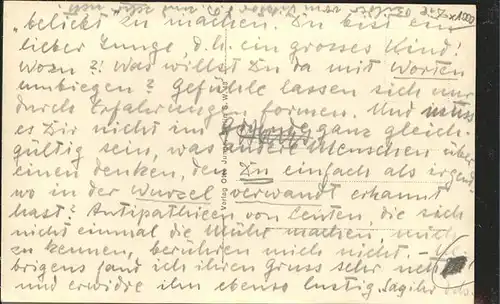 beliebt zu machen. Du bist ein
lieber Junge, d.h. ein grosses Kind!
Wozu?! Was willst Du da mit Worten
umbiegen? Gefühle lassen sich nur
durch Erfahrungen formen. Und muss
es Dir nicht im Grunde ganz gleich-
gültig sein, was andere Menschen über
einen denken, den Du einfach als irgend-
wo in der Wurzel verwandt erkannt
hast? Antipathieen von Leuten, die sich
nicht einmal die Mühe machen, mich
zu kennen, berühren mich nicht. –
brigens fand ich ihren Gruss sehr nett
und erwidre ihm ebenso lustig. Sag ihr das.